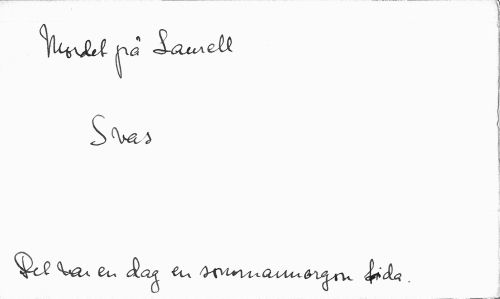 Mordet på Laurell
Svas
Det var en dag en sommarmorgon